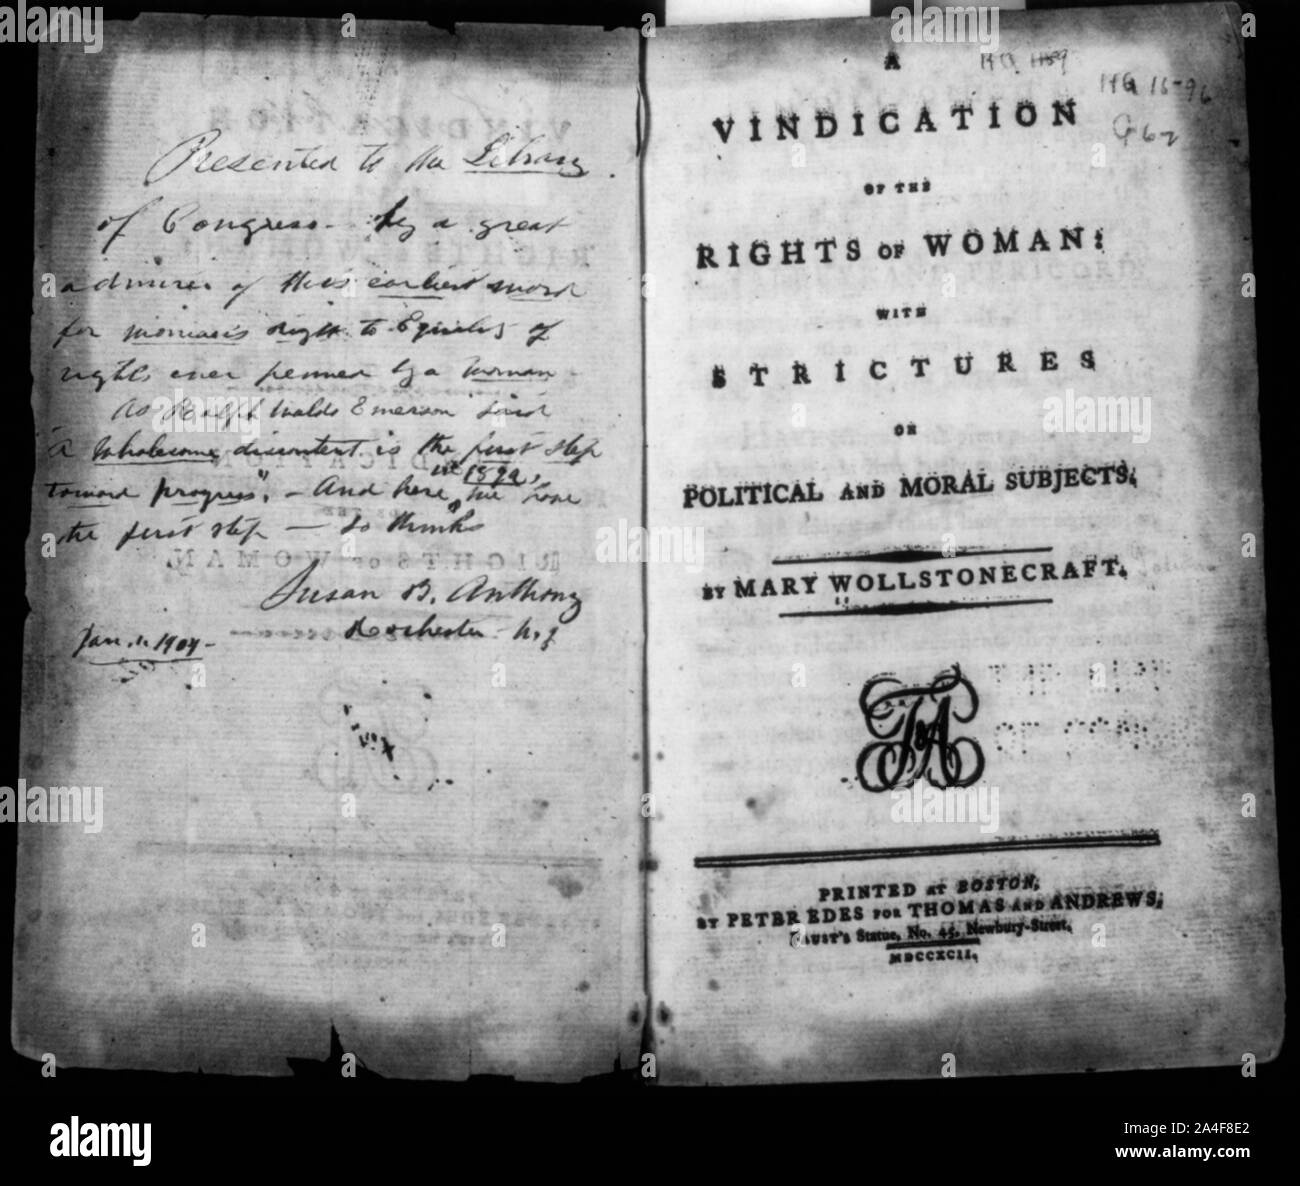 Presented to the Library
of Congress - by a great
admirer of this earliest word
for woman's right to Equality of
rights ever penned by a woman -
As Ralph Waldo Emerson said
"A Wholesome discontent is the first step
toward progress". - And here, in 1892, we have
the first step - so thinks
Susan B. Anthony
Rochester N.Y.
Jan. 1. 1904 -
HQ 1159
HQ 15-96
G 62
A
VINDICATION
OF THE
RIGHTS OF WOMAN:
WITH
STRICTURES
ON
POLITICAL AND MORAL SUBJECTS.
BY MARY WOLLSTONECRAFT.
T&A
PRINTED AT BOSTON,
BY PETER EDES FOR THOMAS AND ANDREWS,
FAUST'S Statue, No. 45, Newbury-Street,
MDCCXCII.
alamy
Image ID: 2A4F8E2
www.alamy.com